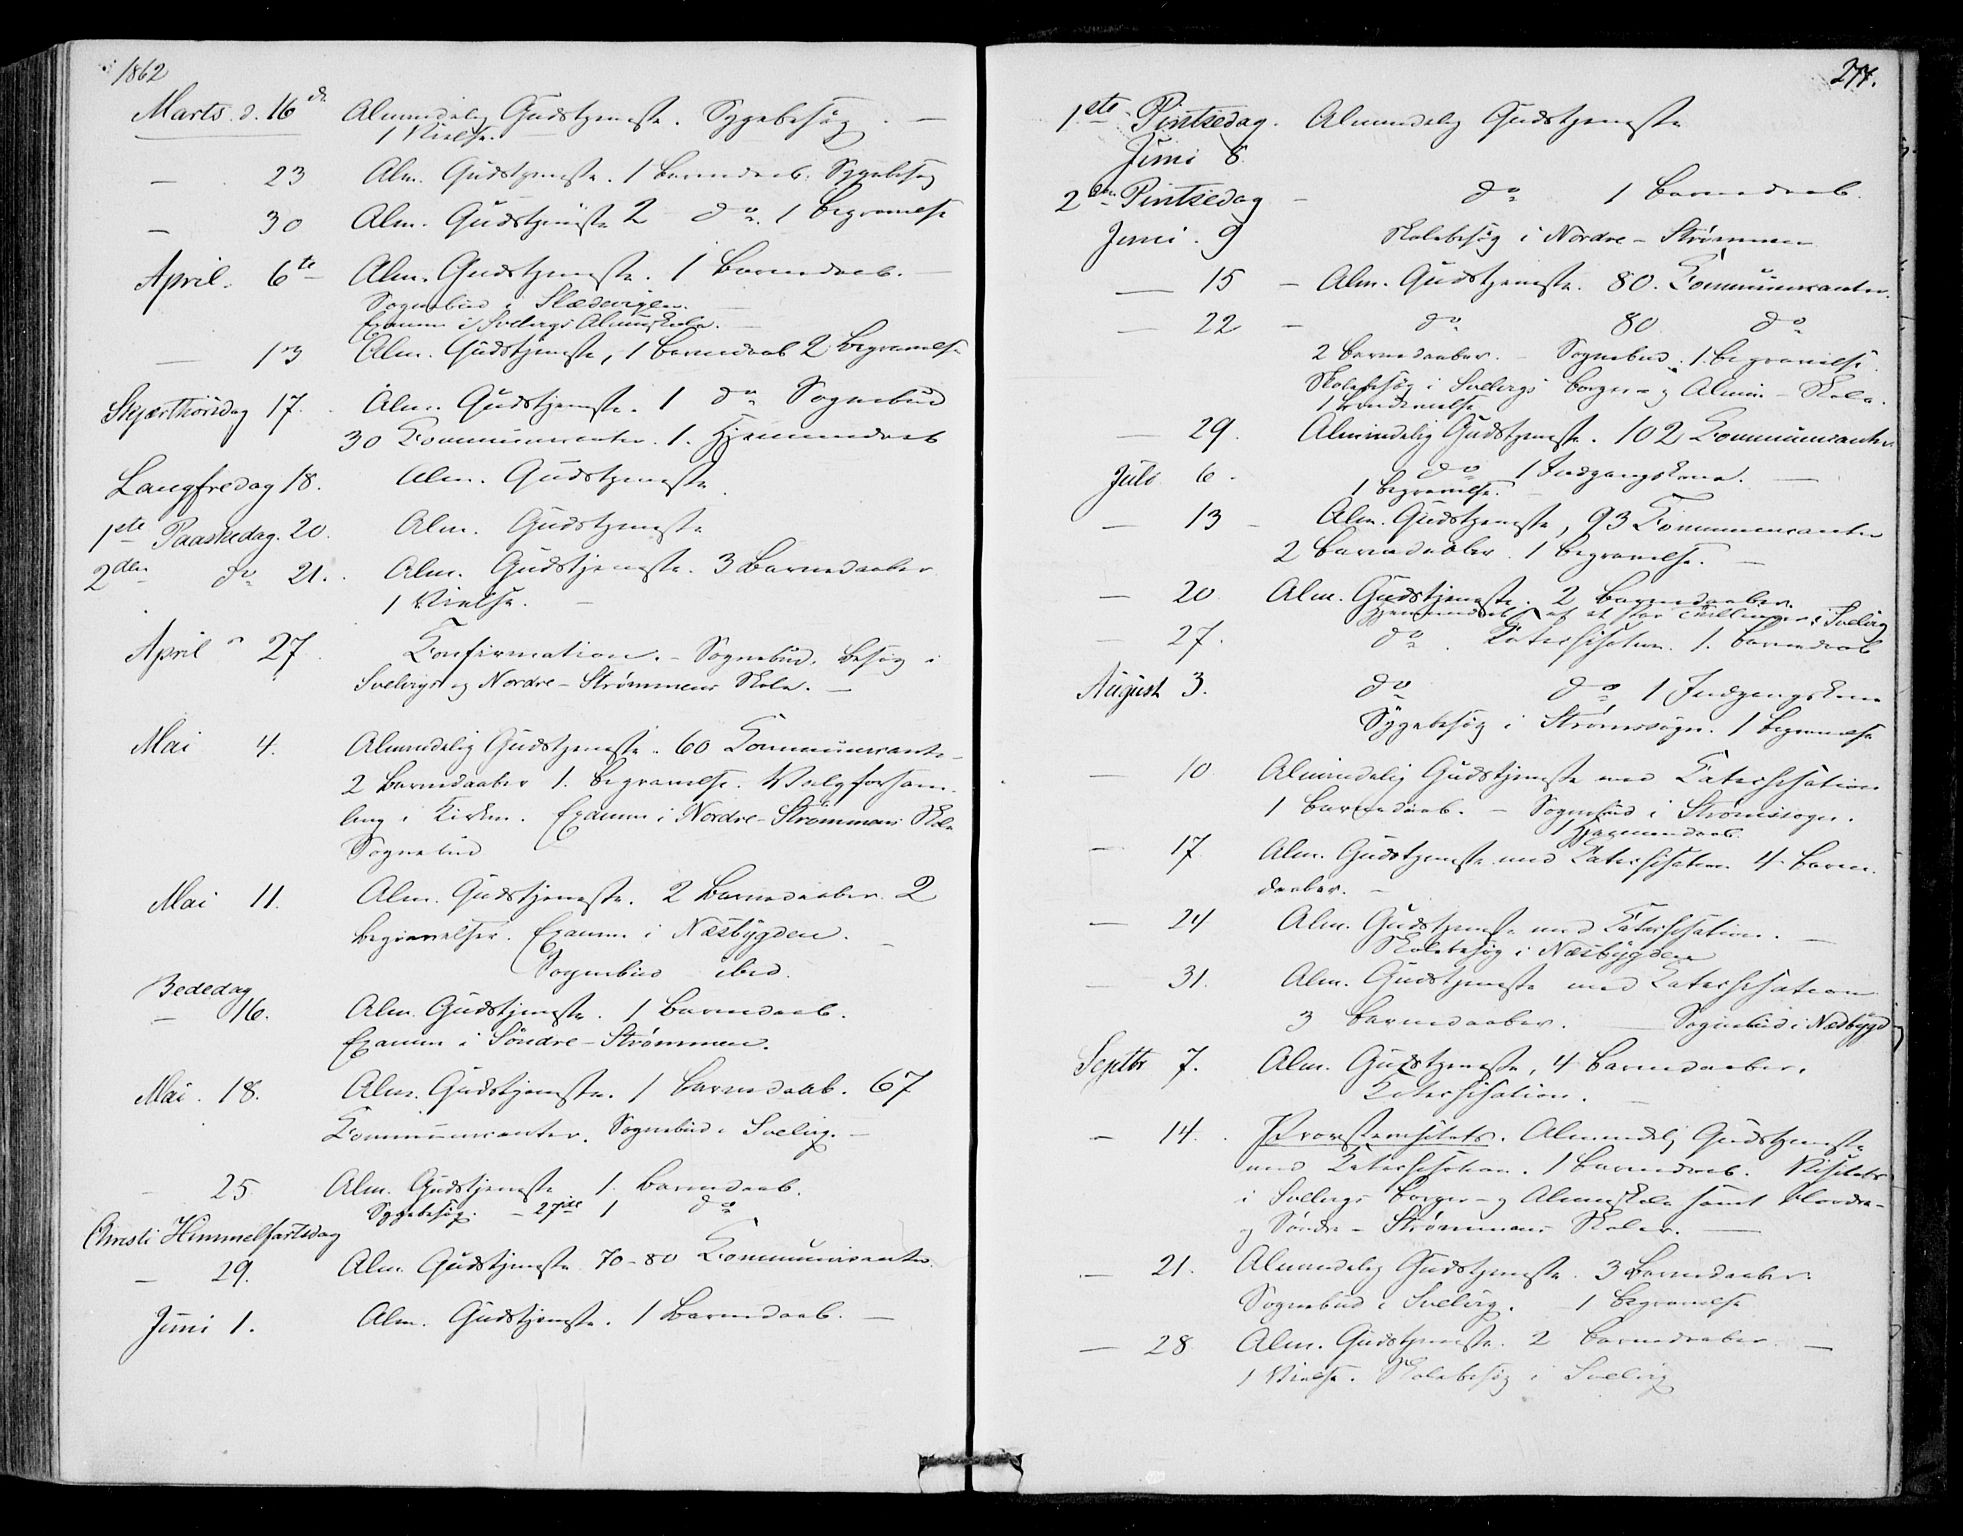 1862
Marts. d. 16de Almindelig Gudstjeneste. Sygebesøg. —
1 Vielse.
— 23 Alm. Gudstjeneste. 1 Barnedaab. Sygebesøg
— 30 Alm. Gudstjeneste 2 do. 1 Begravelse
April. 6te Alm. Gudstjeneste. 1 Barnedaab. —
Sognebud i Slædevigen. —
Examen i Svelvigs Almueskole. —
— 13 Alm. Gudstjeneste, 1 Barnedaab 2 Begravelse
Skjærthorsdag 17. Alm. Gudstjeneste. 1 do Sognebud
30 Communicanter. 1. Hjemmedaab
Langfredag 18. Alm. Gudstjeneste.
1ste Paaskedag. 20. Alm. Gudstjeneste
2den do 21. Alm. Gudstjeneste. 3 Barnedaaber
1 Vielse. —
April 27. Confirmation. – Sognebud. Besøg i
Svelvigs og Nordre–Strømmens Skole. —
Mai 4. Almindelig Gudstjeneste. 60 Communicante–
2 Barnedaaber 1. Begravelse. Valgforsam–
ling i Kirken. Examen i Nordre–Strømmens Skole
Sognebud
Mai 11. Alm. Gudstjeneste. 2 Barnedaaber. 2
Begravelser. Examen i Næsbygden. —
Sognebud ibid.
Bededag
— 16. Alm. Gudstjeneste. 1 Barnedaab.
Examen i Söndre–Strømmen.
Mai. 18. Alm. Gudstjeneste. 1 Barnedaab. 67
Communicanter. Sognebud i Svelvig. —
25 Alm. Gudstjeneste 1. Barnedaab.
Sygebesøg. – 27de 1 do
Christi Himmelfartsdag
— 29. Alm. Gudstjeneste 70–80 Communicanter.
Juni 1. Alm. Gudstjeneste. 1 Barnedaab. —
277.
1ste Pintsedag. Almindelig Gudstjeneste
Juni 8.
2den Pintsedag – do 1 Barnedaab.
Juni. 9 Skolebesøg i Nordre–Strømmen
— 15 – Alm. Gudstjeneste. 80. Communicanter.
— 22 – do 80 do
2 Barnedaaber. – Sognebud. 1. Begravelse.
Skolebesøg i Svelvigs Borger– og Almue–Skole.
— 29. Almindelig Gudstjeneste. 102 Communicanter
Juli 6. do 1 Indgangskone. —
1 Begravelse. —
— 13 – Alm. Gudstjeneste, 93 Communicanter
2 Barnedaaber. 1 Begravelse. —
— 20 Alm. Gudstjeneste. 2 Barnedaaber.
Hjemmedaab af et Par Tvillinger i Svelvig
— 27. do. Catechisation. 1. Barnedaab
August 3. do do 1 Indgangskone
Sygebesøg i Strømssogn. 1 Begravelse
— 10 Almindelig Gudstjeneste med Catechisation
1 Barnedaab. – Sognebud i Strømssogn.
1 Hjemmedaab.
— 17. Alm. Gudstjeneste med Catechisation 4 Barne–
daaber. –
— 24 Alm. Gudstjeneste med Catechisation. —
Skolebesøg i Næsbygden
— 31. Alm. Gudstjeneste med Catechisation
3 Barnedaaber. — Sognebud i Næsbygd
Septbr 7. Alm. Gudstjeneste, 4 Barnedaaber.
Catechisation. —
— 14. Provstevisitats. Almindelig Gudstjeneste
med Catechisation. 1 Barnedaab. Visitats
i Svelvigs Borger– og Almueskole samt Nordre–
og Søndre–Strømmens Skoler. —
— 21. Almindelig Gudstjeneste. 3 Barnedaaber.
Sognebud i Svelvig. – 1 Begravelse
— 28 Alm. Gudstjeneste. 2 Barnedaaber. —
1 Vielse. Skolebesøg i Svelvig